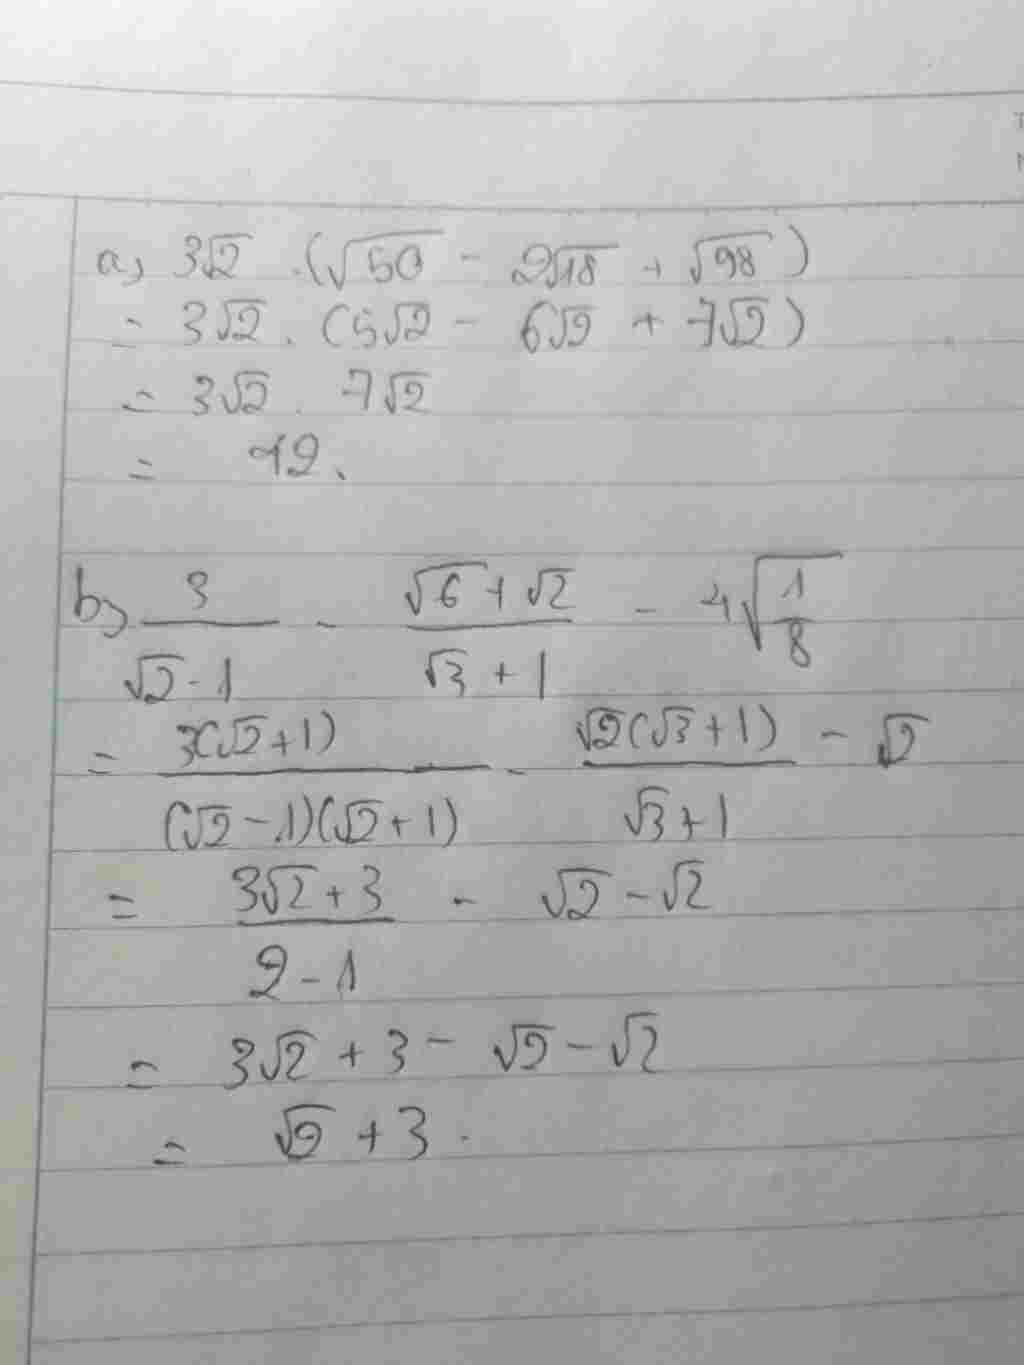 a, 3√2 . (√50 - 2√18 + √98)
= 3√2 . (5√2 - 6√2 + 7√2)
= 3√2 . 7√2
= 42.
b, 3/(√2 - 1) - (√6 + √2)/(√3 + 1) - 4√(1/8)
= 3(√2 + 1)/((√2 - 1)(√2 + 1)) - √2(√3 + 1)/(√3 + 1) - √2
= (3√2 + 3)/(2 - 1) - √2 - √2
= 3√2 + 3 - √2 - √2
= √2 + 3.